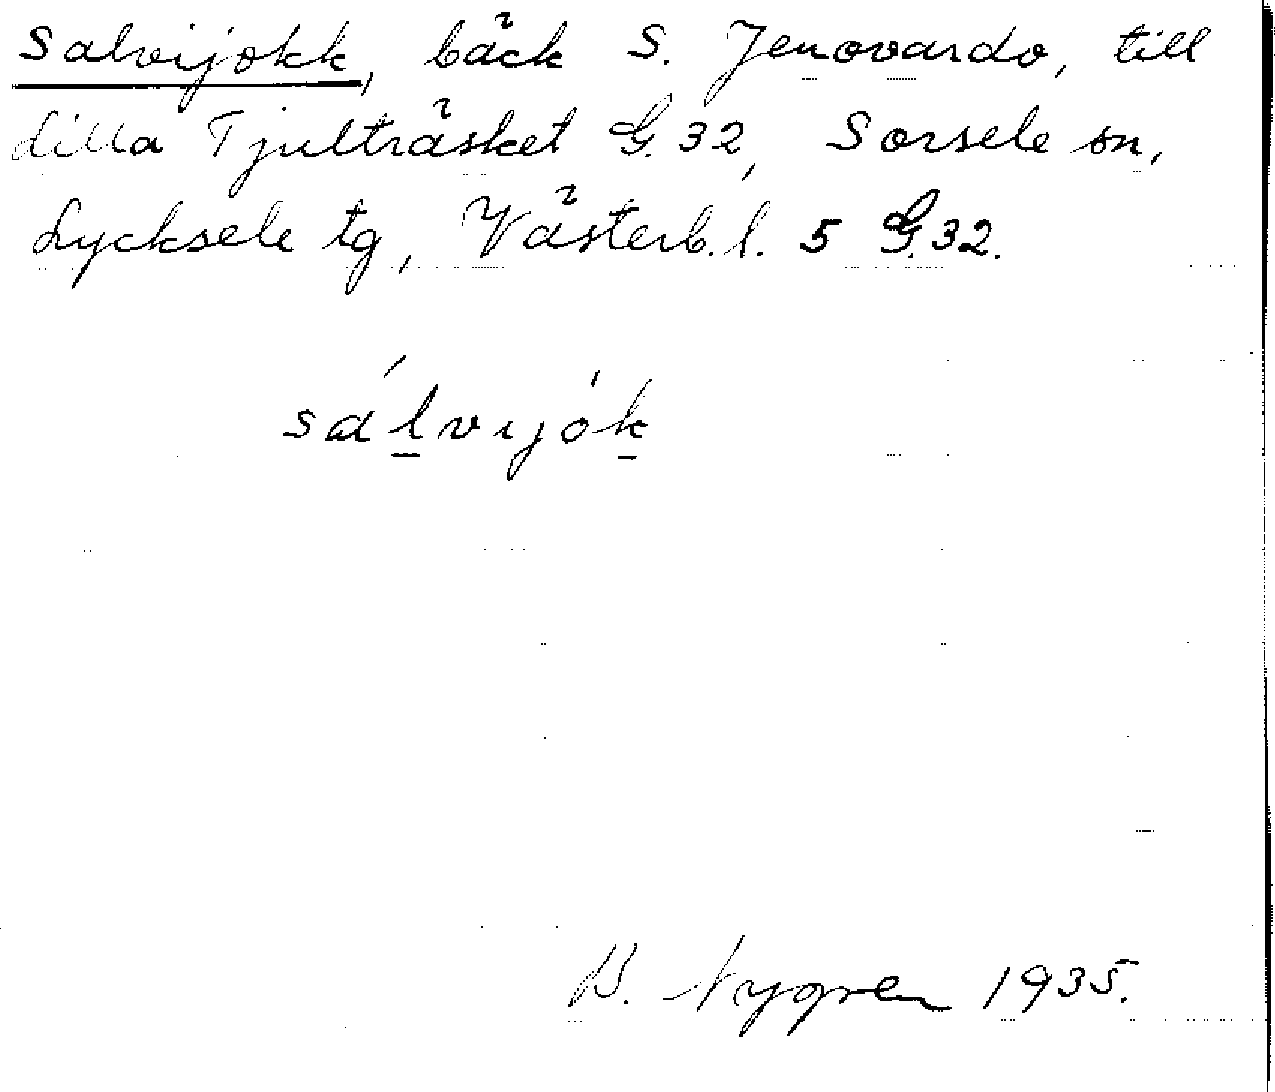 Salvijokk, bäck S. Jenovardo, till
Lilla Tjulträsket G. 32, Sorsele sn,
Lycksele tg, Västerb. l. 5 G. 32.
sálvijók
B. Nygren 1935.